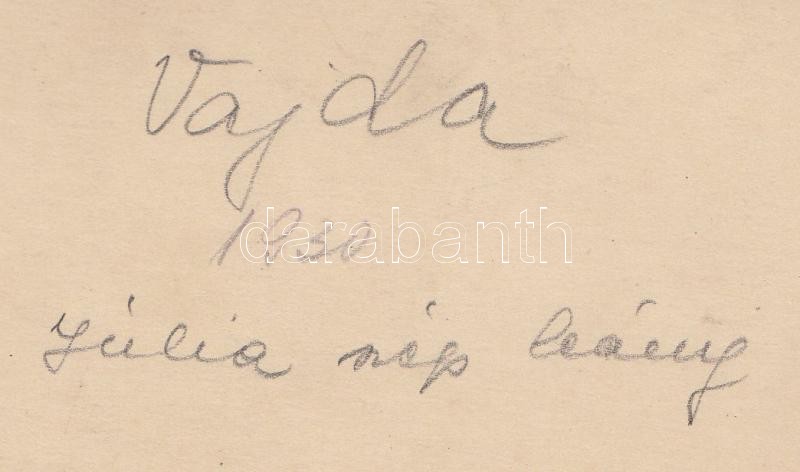 Vajda
1930
darabanth
Júlia szép leány